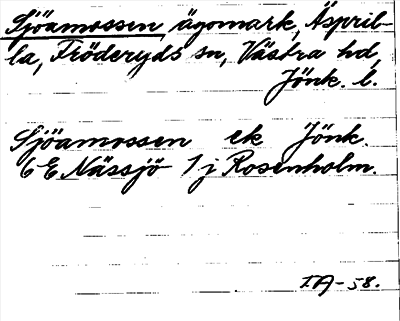 Sjöamossen ägomark, Äspril-
la, Fröderyds sn, Västra hd,
Jönk. l.
Sjöamossen ek Jönk.
6 E Nässjö 1 j Rosenholm.
I.A-58.